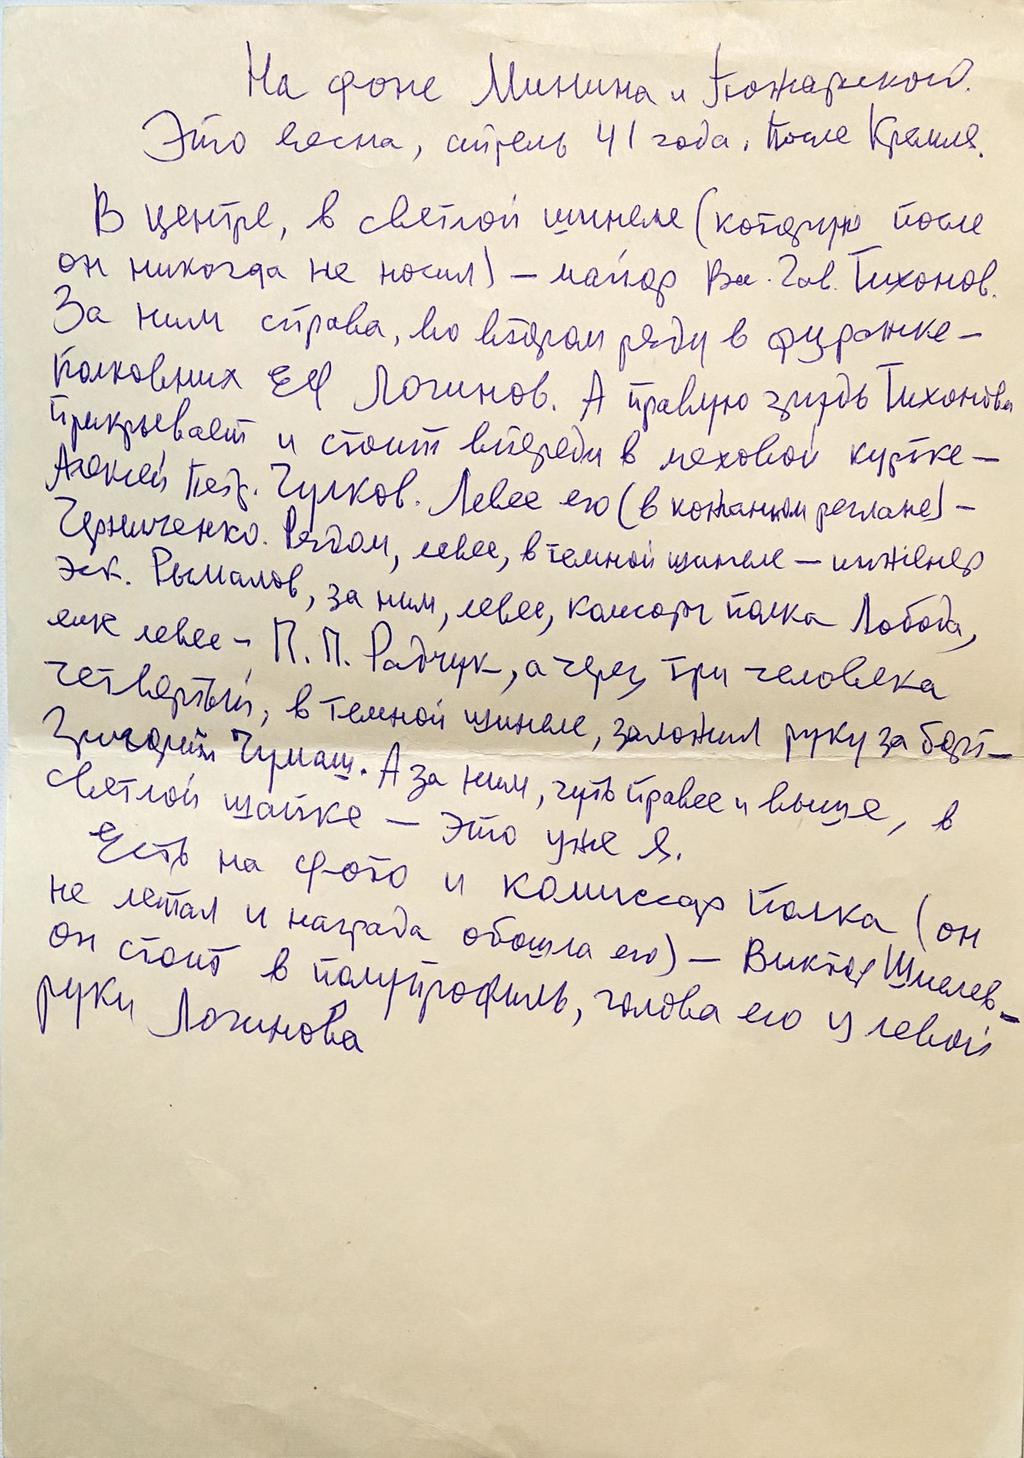 На фоне Минина и Пожарского.
Это весна, апрель 41 года. После Кремля.
В центре, в светлой шинели (которую после
он никогда не носил) — майор Ва. Гав. Тихонов.
За ним справа, во втором ряду в фуражке —
полковник ЕФ Логинов. А правую грудь Тихонова
прикрывает и стоит впереди в меховой куртке —
Алексей Петр. Чулков. Левее его (в кожаном реглане) —
Черниченко. Рядом, левее, в темной шинели — инженер
эск. Рымалов, за ним, левее, комсорг полка Лобода,
еще левее — П. П. Радчук, а через три человека
четвертый, в темной шинели, заложил руку за борт —
Григорий Чумаш. А за ним, чуть правее и выше, в
светлой шапке — это уже я.
Есть на фото и комиссар полка (он
не летал и награда обошла его) — Виктор Шмелев —
он стоит в полупрофиль, голова его у левой
руки Логинова